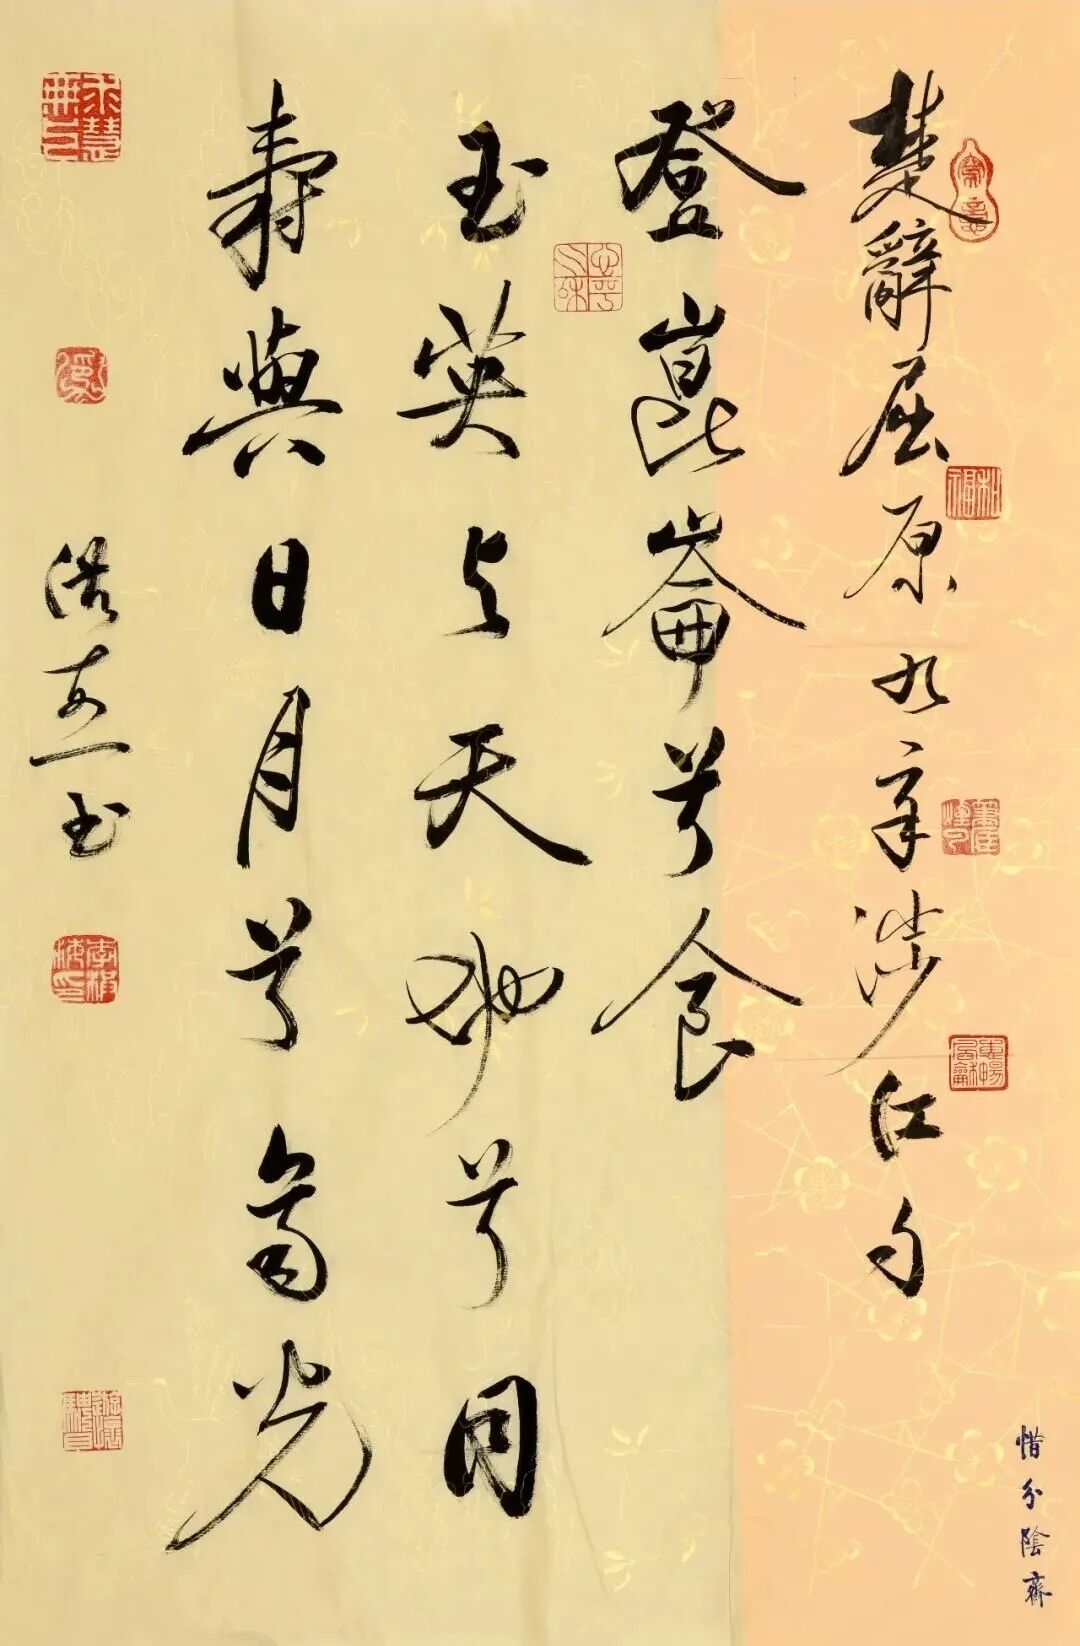 楚辭屈原九章涉江句
登崑崙兮食
玉英与天地兮同
壽與日月兮齊光
浩书
惜分陰齋